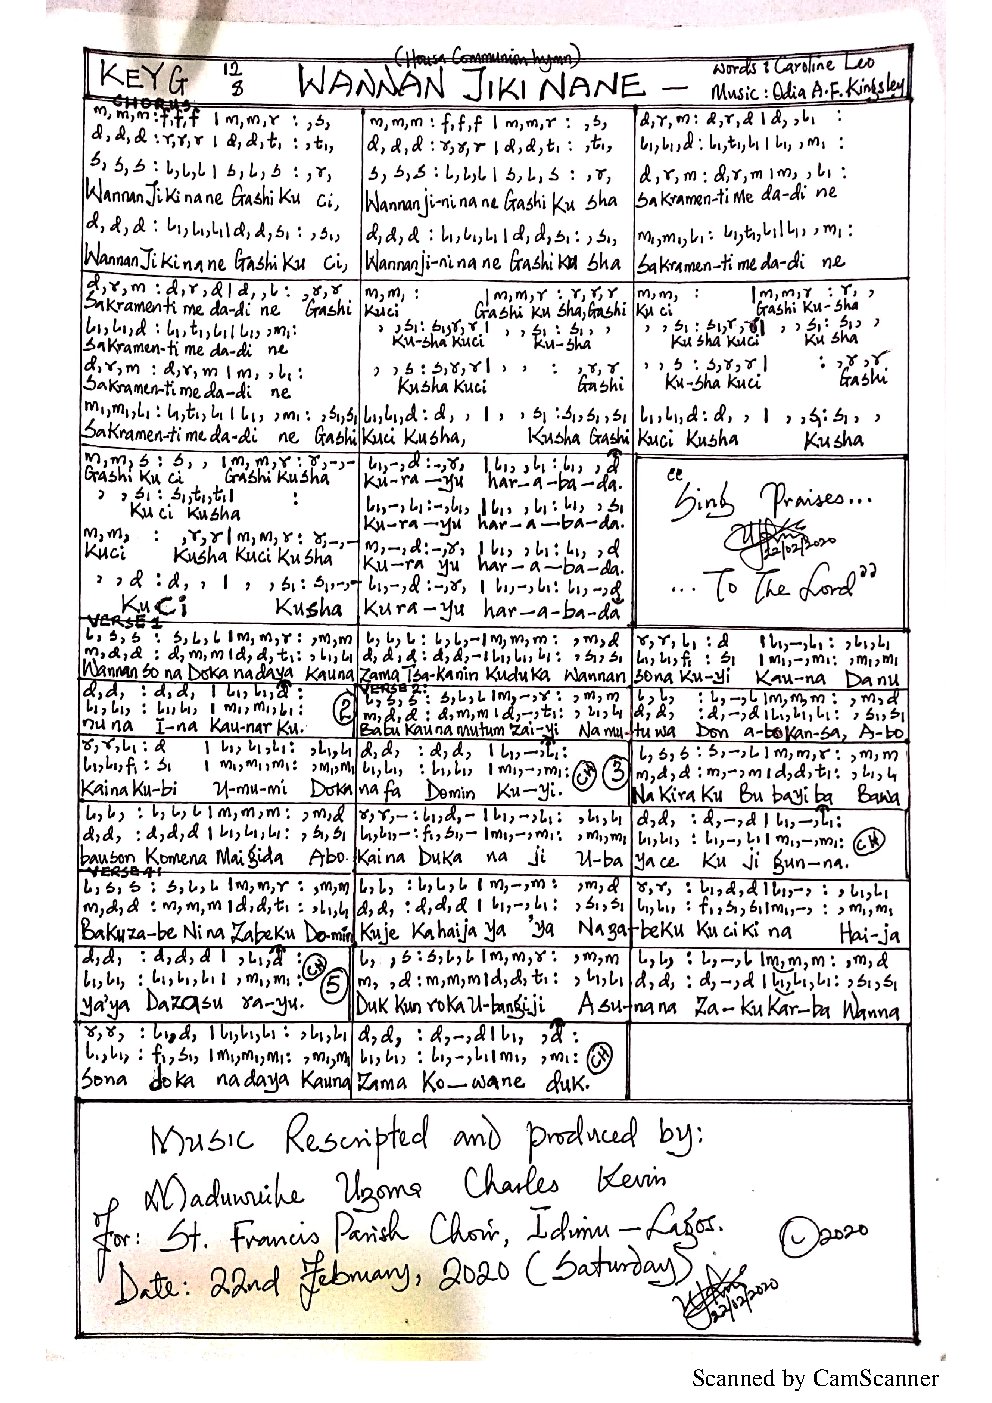 (Hausa Communion hymn)
KEY G 12/8 WANNAN JIKI NANE —
Words: Caroline Leo
Music: Odia A.F. Kingsley
CHORUS:
m,m,m:f,f,f | m,m,r : ,s,
d,d,d:r,r,r | d,d,t₁ : ,t₁,
s,s,s:l,l,l | s,l,s : ,r,
Wannan Jiki nane Gashi Ku ci,
d,d,d : l₁,l₁,l₁ | d,d,s₁ : ,s₁,
Wannan Jiki nane Gashi Ku ci,
m,m,m : f,f,f | m,m,r : ,s,
d,d,d : r,r,r | d,d,t₁ : ,t₁,
s,s,s : l,l,l | s,l,s : ,r,
Wannan ji-ni na ne Gashi Ku sha
d,d,d : l₁,l₁,l₁ | d,d,s₁ : ,s₁,
Wannan ji-ni na ne Gashi Ku sha
d,r,m : d,r,d | d, ,l₁ :
l₁,l₁,d : l₁,t₁,l₁ | l₁, ,m₁ :
d,r,m : d,r,m | m, ,l₁ :
Sakramen-ti me da-di ne
m₁,m₁,l₁ : l₁,t₁,l₁ | l₁, ,m₁ :
Sakramen-ti me da-di ne
d,r,m : d,r,d | d, ,l₁ : ,r,r
Sakramen-ti me da-di ne Gashi
l₁,l₁,d : l₁,t₁,l₁ | l₁, ,m₁:
Sakramen-ti me da-di ne
d,r,m : d,r,m | m, ,l₁ :
Sakramen-ti me da-di ne
m₁,m₁,l₁ : l₁,t₁,l₁ | l₁, ,m₁ : ,s₁,s₁
Sakramen-ti me da-di ne Gashi
m,m, : | m,m,r : r,r,r
Kuci Gashi Ku sha, Gashi
, ,s₁ : s₁,r,r | , ,s₁ : s₁, ,
Ku-sha Kuci Ku-sha
, ,s : s,r,r | , , : ,r,r
Kusha Kuci Gashi
l₁,l₁,d : d, , | , ,s₁ : s₁,s₁,s₁
Kuci Kusha, Kusha Gashi
m,m, : | m,m,r : r, ,
Ku ci Gashi Ku-sha
, ,s₁ : s₁,r,r | , ,s₁ : s₁, ,
Ku sha Kuci Ku sha
, ,s : s,r,r | : ,r,r
Ku-sha Kuci Gashi
l₁,l₁,d : d, , | , ,s₁ : s₁, ,
Kuci Kusha Kusha
m,m,s : s, , | m,m,r : r,-,-
Gashi Ku ci Gashi Kusha
, ,s₁ : s₁,t₁,t₁ | :
Ku ci Kusha
m,m, : ,r,r | m,m,r : r,-,-
Kuci Kusha Kuci Kusha
, ,d : d, , | , ,s₁ : s₁,-,-
Ku Ci Kusha
l₁,-,d :-,r, | l₁, ,l₁ : l₁, ,d
Ku-ra-yu har-a-ba-da.
l₁,-,l₁ :-,l₁, | l₁, ,l₁ : l₁, ,s₁
Ku-ra-yu har-a-ba-da.
m,-,d :-,r, | l₁, ,l₁ : l₁, ,d
Ku-ra yu har-a-ba-da.
l₁,-,d :-,r | l₁,-,l₁ : l₁,-,d
Kura-yu har-a-ba-da
" Sing Praises...
22/02/2020
... To The Lord"
VERSE 1
l,s,s : s,l,l | m,m,r : ,m,m
m,d,d : d,m,m | d,d,t₁ : ,l₁,l₁
Wannan So na Doka na daya Kauna
l,l,l : l,l,- | m,m,m : ,m,d
d,d,d : d,d,- | l₁,l₁,l₁ : ,s₁,s₁
Zama Tsa-kanin Kuduka Wannan
r,r,l₁ : d | l₁,-,l₁ : ,l₁,l₁
l₁,l₁,f₁ : s₁ | m₁,-,m₁ : ,m₁,m₁
Sona Ku-yi Kau-na Da nu
d,d, : d,d | l₁, l₁,d :
l₁,l₁, : l₁,l₁ | m₁,m₁,l₁
nu na I-na Kau-nar Ku.
②
VERSE 2:
l,s,s : s,l,l | m,-,r : ,m,m
m,d,d : d,m,m | d,-,t₁ : ,l₁,l₁
Babu Kauna mutum Zai-yi Na mu-
l,l, : l,-,l | m,m,m : ,m,d
d,d, : d,-,d | l₁,l₁,l₁ : ,s₁,s₁
tu wa Don a-bokan-sa, A-bo
r,r,l₁ : d | l₁,l₁,l₁ : ,l₁,l₁
l₁,l₁,f₁ : s₁ | m₁,m₁,m₁ : ,m₁,m₁
Kaina Ku-bi U-mu-mi Doka
d,d, : d,d, | l₁,-,l₁:
l₁,l₁, : l₁,l₁ | m₁,-,m₁:
na fa Domin Ku-yi.
CH ③
l,s,s : s,-,l | m,m,r : ,m,m
m,d,d : m,-,m | d,d,t₁ : ,l₁,l₁
Na Kira Ku Bu bayi ba Bawa
l,l, : l,l,l | m,m,m : ,m,d
d,d, : d,d,d | l₁,l₁,l₁ : ,s₁,s₁
bauson Komena Maigida Abo
r,r,- : l₁,d,- | l₁,l₁,l₁ : ,l₁,l₁
l₁,l₁,- : f₁,s₁,- | m₁,-,m₁ : ,m₁,m₁
Kai na Duka na ji U-ba
d,d, : d,-,d | l₁,-,l₁:
l₁,l₁, : l₁,-,l₁ | m₁,-,m₁:
ya ce Ku ji gun-na.
CH
VERSE 4:
l,s,s : s,l,l | m,m,r : ,m,m
m,d,d : m,m,m | d,d,t₁ : ,l₁,l₁
Bakuza-be Ni na Zabe Ku Do-min
l,l, : l,l,l | m,-,m : ,m,d
d,d, : d,d,d | l₁,-,l₁ : ,s₁,s₁
Kuje Kahaija ya 'ya Na za-
r,r, : l₁,d,d | l₁,-, : ,l₁,l₁
l₁,l₁, : f₁,s₁,s₁ | m₁,-, : ,m₁,m₁
beKu Ku ci ki na Hai-ja
d,d, : d,d,d | ,l₁,d :
l₁,l₁, : l₁,l₁,l₁ | ,m₁,m₁ :
ya'ya Dazasu ra-yu.
CH ⑤
l, ,s : s,l,l | m,m,r : ,m,m
m, ,d : m,m,m | d,d,t₁ : ,l₁,l₁
Duk Kun roka U-bangiji A su-
l,l, : l,-,l | m,m,m : ,m,d
d,d, : d,-,d | l₁,l₁,l₁ : ,s₁,s₁
na na Za-ku Kar-ba Wanna
r,r, : l₁,d, | l₁,l₁,l₁ : ,l₁,l₁
l₁,l₁, : f₁,s₁, | m₁,m₁,m₁ : ,m₁,m₁
Sona doka na daya Kauna
d,d, : d,-,d | l₁, ,d :
l₁,l₁, : l₁,-,l₁ | m₁, ,m₁ :
Zama Ko-wane duk.
CH
Music Rescripted and produced by:
Maduwuike Uzoma Charles Kevin
for: St. Francis Parish Choir, Idimu - Lagos.
© 2020
Date: 22nd February, 2020 (Saturday)
22/02/2020
Scanned by CamScanner